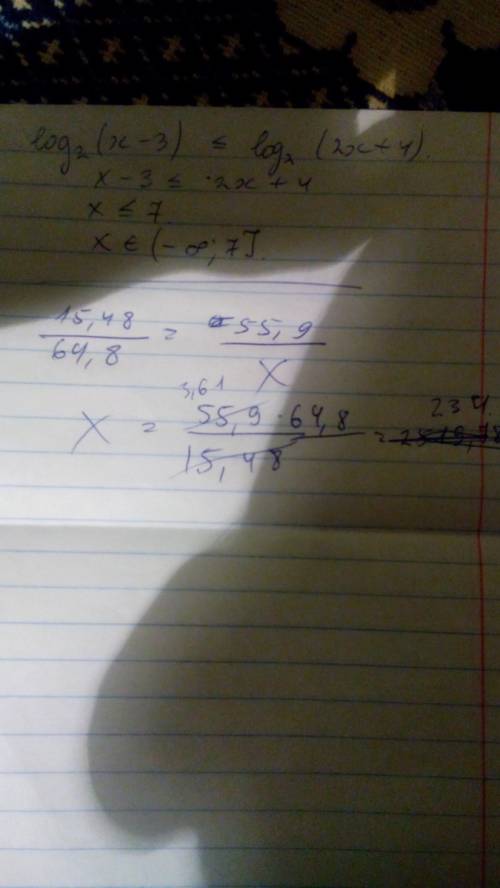 log₂(x-3) ≤ log₂(2x+4).
x-3 ≤ 2x+4
x ≤ 7
x ∈ (-∞; 7].
15,48 / 64,8 = 55,9 / x
3,61
x = 55,9 · 64,8 / 15,48 = 234